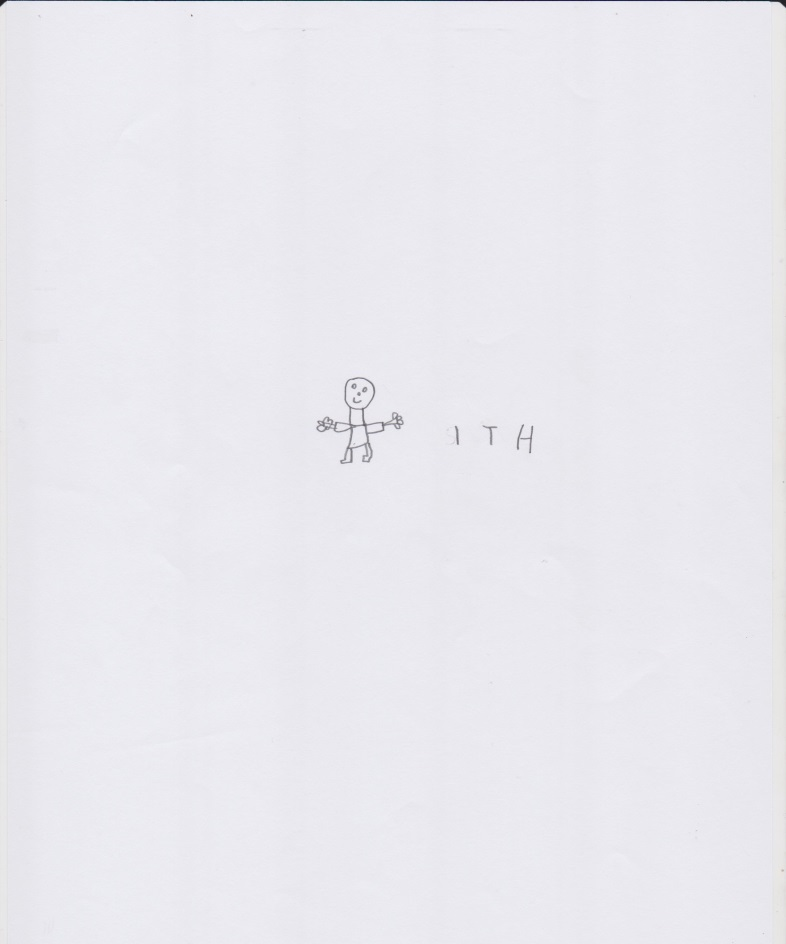 I T H